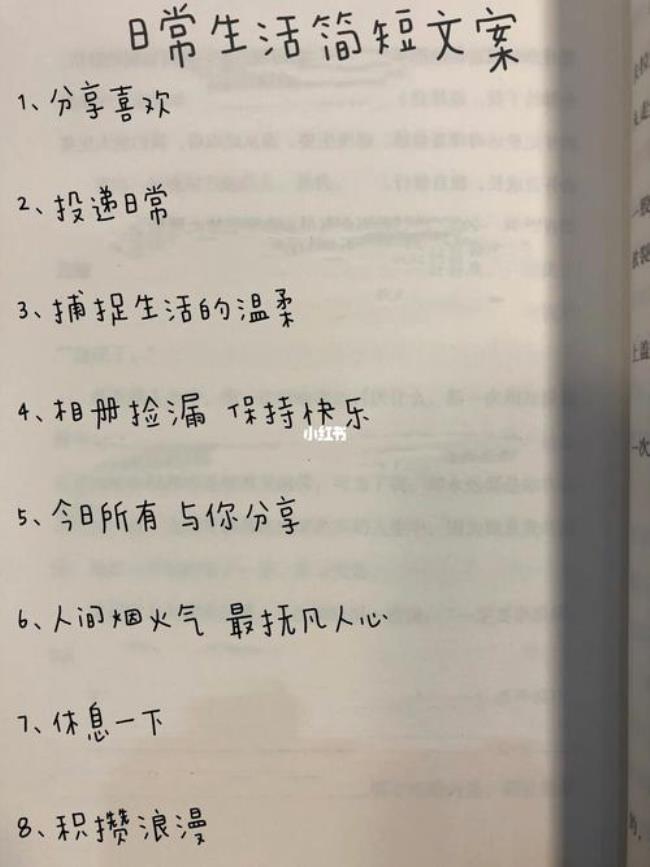 日常生活简短文案
1、分享喜欢
2、投递日常
3、捕捉生活的温柔
4、相册捡漏 保持快乐
小红书
5、今日所有 与你分享
6、人间烟火气 最抚凡人心
7、休息一下
8、积攒浪漫